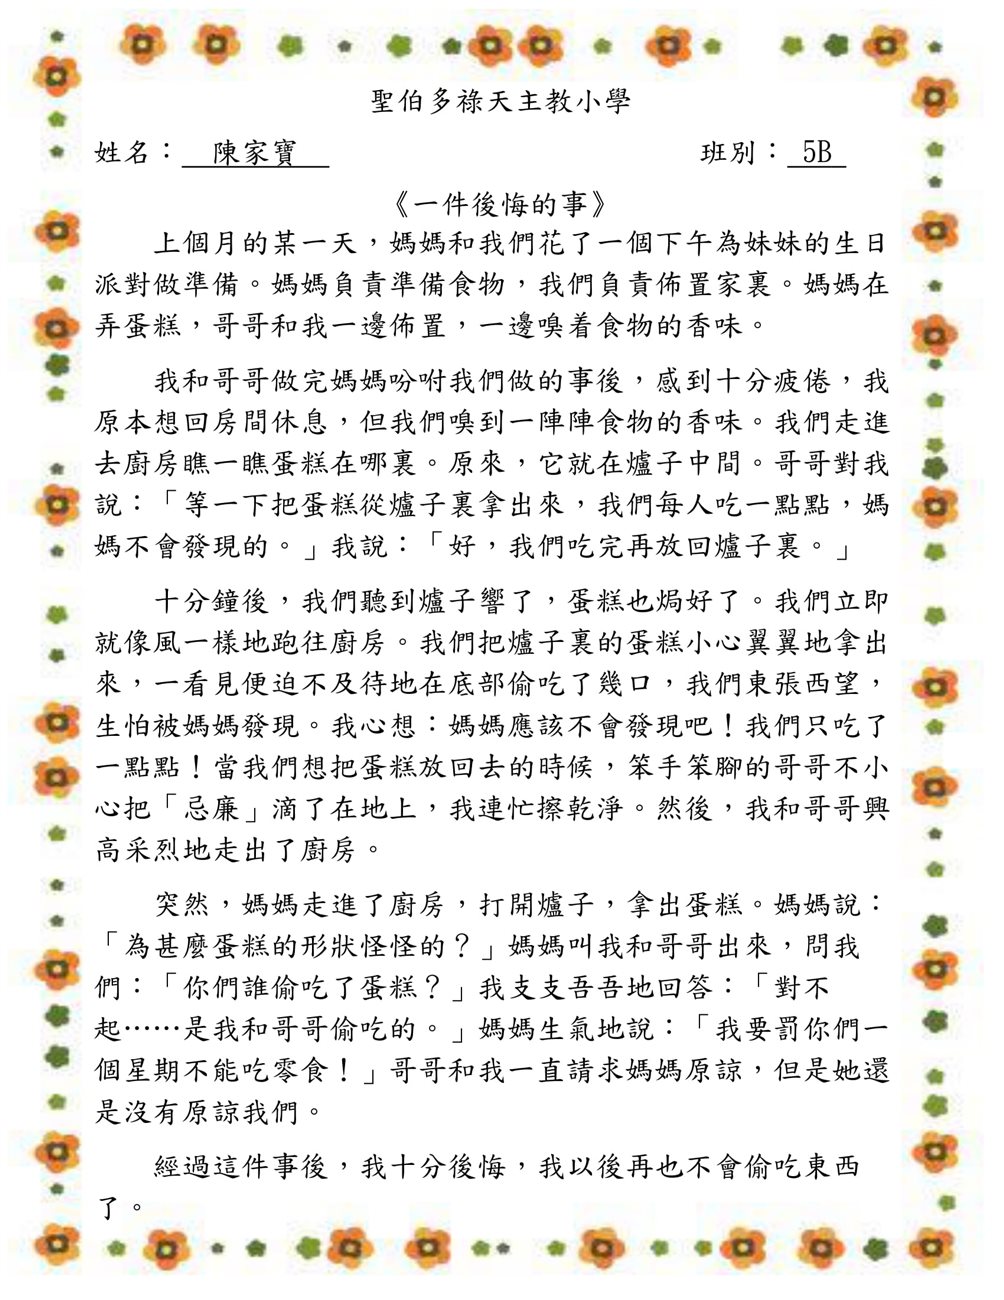 聖伯多祿天主教小學
姓名：　陳家寶　　班別： 5B
《一件後悔的事》
上個月的某一天，媽媽和我們花了一個下午為妹妹的生日
派對做準備。媽媽負責準備食物，我們負責佈置家裏。媽媽在
弄蛋糕，哥哥和我一邊佈置，一邊嗅着食物的香味。
我和哥哥做完媽媽吩咐我們做的事後，感到十分疲倦，我
原本想回房間休息，但我們嗅到一陣陣食物的香味。我們走進
去廚房瞧一瞧蛋糕在哪裏。原來，它就在爐子中間。哥哥對我
說：「等一下把蛋糕從爐子裏拿出來，我們每人吃一點點，媽
媽不會發現的。」我說：「好，我們吃完再放回爐子裏。」
十分鐘後，我們聽到爐子響了，蛋糕也焗好了。我們立即
就像風一樣地跑往廚房。我們把爐子裏的蛋糕小心翼翼地拿出
來，一看見便迫不及待地在底部偷吃了幾口，我們東張西望，
生怕被媽媽發現。我心想：媽媽應該不會發現吧！我們只吃了
一點點！當我們想把蛋糕放回去的時候，笨手笨腳的哥哥不小
心把「忌廉」滴了在地上，我連忙擦乾淨。然後，我和哥哥興
高采烈地走出了廚房。
突然，媽媽走進了廚房，打開爐子，拿出蛋糕。媽媽說：
「為甚麼蛋糕的形狀怪怪的？」媽媽叫我和哥哥出來，問我
們：「你們誰偷吃了蛋糕？」我支支吾吾地回答：「對不
起……是我和哥哥偷吃的。」媽媽生氣地說：「我要罰你們一
個星期不能吃零食！」哥哥和我一直請求媽媽原諒，但是她還
是沒有原諒我們。
經過這件事後，我十分後悔，我以後再也不會偷吃東西
了。